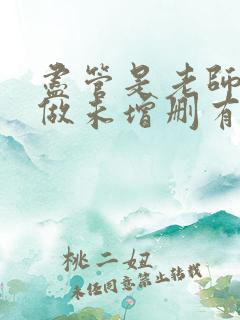 盡管是老師
做未增刪有
桃二妞
未經同意禁止轉載